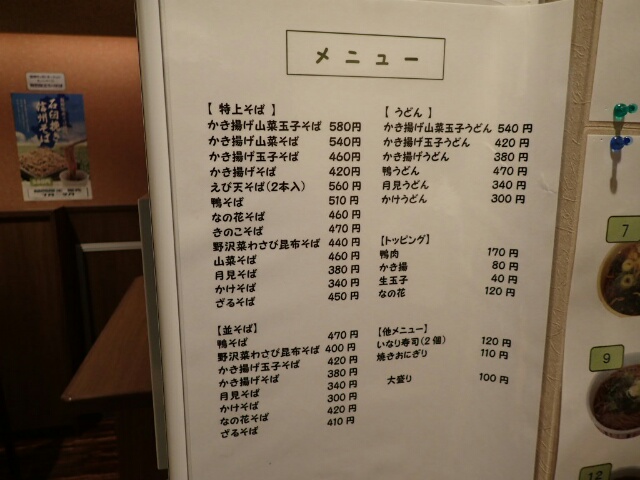 メニュー
【 特上そば 】
かき揚げ山菜玉子そば 580円
かき揚げ山菜そば 540円
かき揚げ玉子そば 460円
かき揚げそば 420円
えび天そば(2本入) 560円
鴨そば 510円
なの花そば 460円
きのこそば 470円
野沢菜わさび昆布そば 440円
山菜そば 460円
月見そば 380円
かけそば 340円
ざるそば 450円
【並そば】
鴨そば 470円
野沢菜わさび昆布そば 400円
かき揚げ玉子そば 420円
かき揚げそば 380円
月見そば 340円
かけそば 300円
なの花そば 420円
ざるそば 410円
【 うどん 】
かき揚げ山菜玉子うどん 540円
かき揚げ玉子うどん 420円
かき揚げうどん 380円
鴨うどん 470円
月見うどん 340円
かけうどん 300円
【トッピング】
鴨肉 170円
かき揚 80円
生玉子 40円
なの花 120円
【他メニュー】
いなり寿司(2個) 120円
焼きおにぎり 110円
大盛り 100円
石臼挽き
信州そば
7
9
12